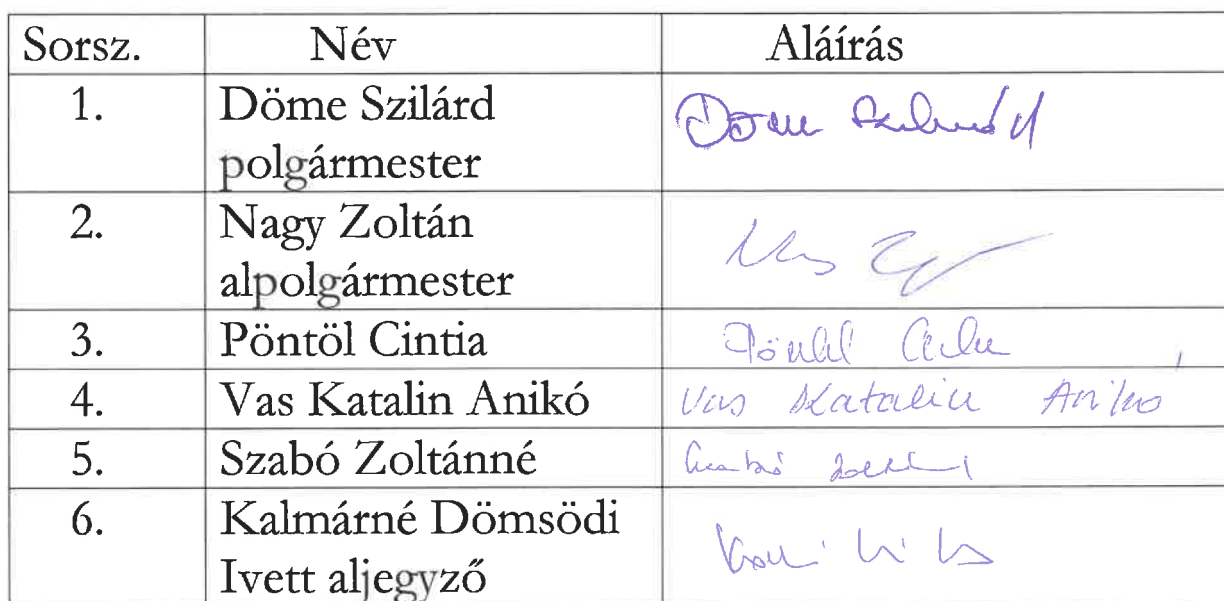 Sorsz. Név Aláírás
1. Döme Szilárd
polgármester
2. Nagy Zoltán
alpolgármester
3. Pöntöl Cintia
4. Vas Katalin Anikó Vas Katalin Anikó
5. Szabó Zoltánné
6. Kalmárné Dömsödi
Ivett aljegyző